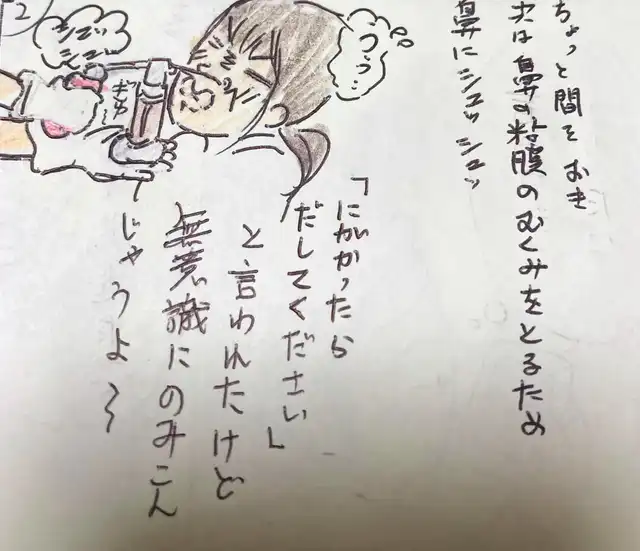 ちょっと間をおき
次は鼻の粘膜のむくみをとるため
鼻にシュッシュッ
「にがかったら
だしてください」
と言われたけど
無意識にのみこん
じゃうよ〜
うぅ…
シュッ
シュッ
2